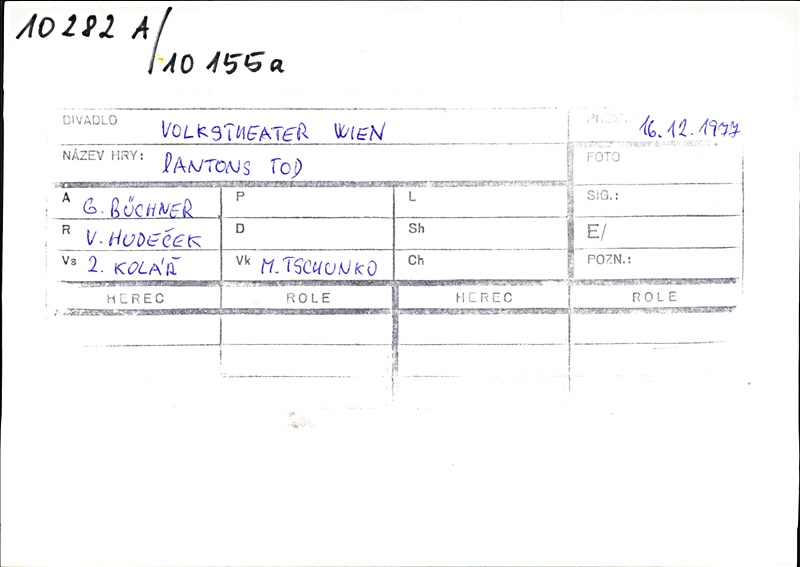 10282 A/
10 155a
DIVADLO VOLKSTHEATER WIEN PREM. 16.12.1977
NÁZEV HRY: DANTONS TOD FOTO
A G. BÜCHNER P L SIG.:
R V. HUDEČEK D Sh E/
Vs Z. KOLÁŘ Vk M. TSCHUNKO Ch POZN.:
HEREC ROLE HEREC ROLE